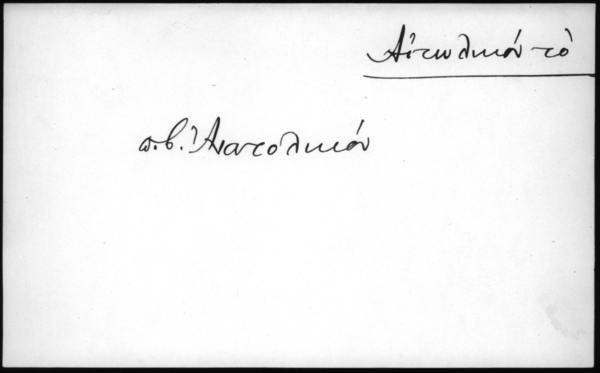 Αἰτωλικόν τό
π.β. Ἀνατολικόν